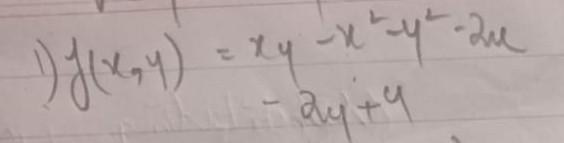 1) f(x,y) = xy - x² - y² - 2x
- 2y + 4